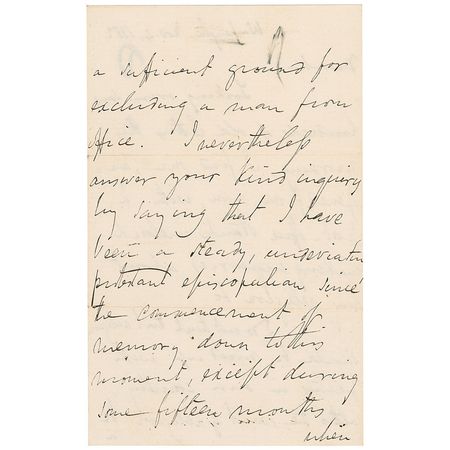 a sufficient ground for
excluding a man from
office. I nevertheless
answer your kind inquiry
by saying that I have
been a steady, undeviatin
protestant episcopalian since
the commencement of
memory down to this
moment, except during
some fifteen months
when